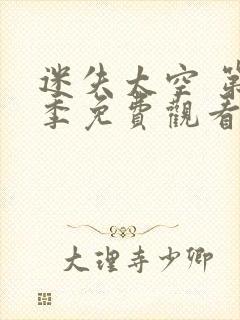 迷失太空 第
季免費觀看
大理寺少卿